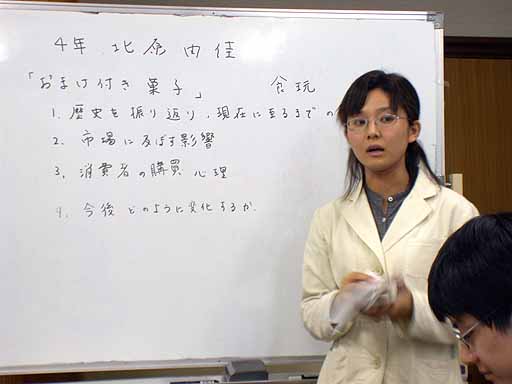 4年 北原 内佳
「おまけ付き菓子」 食玩
1. 歴史を振り返り、現在に至るまでの
2. 市場に及ぼす影響
3. 消費者の購買心理
4. 今後どのように変化するか.